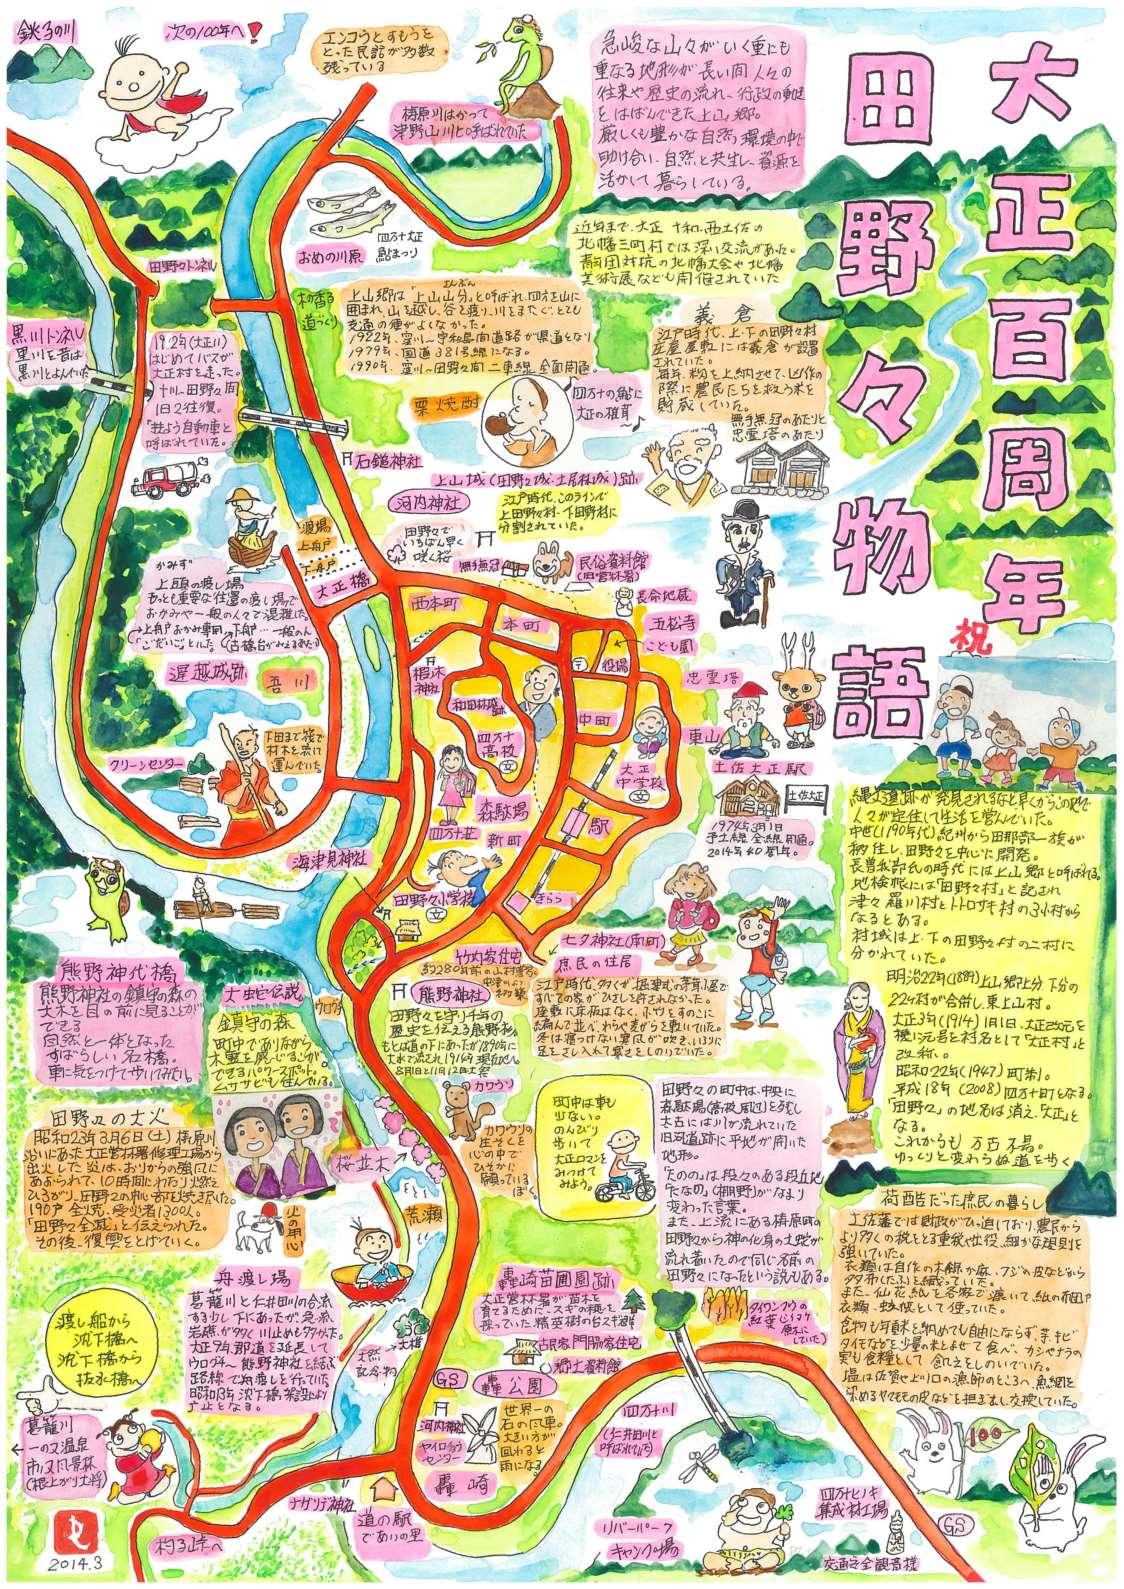 大正百周年
田野々物語
祝
銚子の川
次の100年へ！
エンコウとすもうを
とった民話が多数
残っている
梼原川はかって
津野山川と呼ばれていた
急峻な山々がいく重にも
重なる地形が長い間人々の
往来や歴史の流れ、行政の動
をはばんできた上山郷。
厳しくも豊かな自然環境の中で
助け合い、自然と共生し、資源を
活かして暮らしている。
近年まで、大正 十和、西土佐の
北幡三町村では深い交流があった。
青年団対抗の北幡大会や北幡
美術展なども開催されていた
おめの川原
四万十大正
鮎まつり
田野々トンネル
木の香る
道づくり
上山郷は「上山山分」と呼ばれ、四方を山に
囲まれ、山を越し、谷を渡り、川をまたぐ、とても
交通の便がよくなかった。
1922年、窪川〜宇和島間道路が県道となり
1979年、国道381号線になる。
1990年、窪川〜田野々間 二車線 全面開通。
義倉
江戸時代、上、下の田野々村
庄屋屋敷には義倉が設置
されていた。
毎年、籾を上納させて、凶作の
際に農民たちを救う米を
貯蔵していた。
無手無冠のあたりと
忠霊塔のあたり
黒川トンネル
里川を昔は
黒川とよんでいた
1929年(大正川)
はじめてバスが
大正村を走った。
十川〜田野々間
1日2往復。
「共よう自動車と
呼ばれていた。
栗焼酎
四万十の鮎に
大正の椎茸
石鎚神社
上山城(田野々城・土居松城)跡
河内神社
江戸時代、このラインで
上田野々村、下田野村に
分割されていた。
田野々で
いちばん早く
咲く桜
無手無冠
民俗資料館
(旧営林署)
渡場
上舟戸
下舟戸
大正橋
かみず
上頭の渡し場
もっとも重要な位置の渡し場で
おかみや一般の人々で混雑した。
西本町
本町
延命地蔵
五松寺
こども園
役場
忠霊塔
東山
渥越城跡
吾川
下田まで筏で
材木を流に
運んでいた。
クリーンセンター
椙木
神社
四万十
高校
中町
大正
中学校
森駄場
四万十荘
新町
駅
きらら
土佐大正駅
土佐大正
1974年3月1日
予土線全線開通。
2014年40周年。
海津見神社
田野々小学校
竹内家住宅
七夕神社(南町)
庶民の住居
江戸時代、多くが掘建て茅葺き屋で
すべての家がひさしを許されなかった。
座敷に床板はなく、ホウをすのこに
編んで並べ、わらや麦がらを敷いていた。
冬は隙っけない寒風が吹き、いろりに
足をさし入れて寒さをしのいでいた。
縄文遺跡が発見されるなど早くからこの地で
人々が定住して生活を営んでいた。
中世(1190年代)紀州から田那部一族が
移住し、田野々を中心に開発。
長曽我部氏の時代には上山郷と呼ばれる。
地検帳には「田野々村」と記され
津々羅川村とトトロサキ村の3小村から
なるとある。
村域は上・下の田野々村の二村に
分かれていた。
明治22年(1889)上山郷上分 下分の
22ヶ村が合併し、東上山村。
大正3年(1914)1月1日、大正改元を
機に元号を村名として「大正村」と
改称。
昭和22年(1947)町制。
平成18年(2008)四万十町となる。
「田野々」の地名は消え、「大正」と
なる。
これからも 万古不易。
ゆっくりと変わらぬ道を歩く
熊野神代橋
熊野神社の鎮守の森の
大木を目の前に見ることが
できる
自然と一体となった
すばらしい名橋。
車に気をつけて歩いてみたい。
大蛇伝説
ウログチ
鎮守の森
町中でありながら
木霊を感じることが
できるパワースポット。
ムササビも住んでいる。
熊野神社
田野々を守り千年の
歴史を伝える熊野杉。
もとは道の下にあったが1890年に
大水で流され1916年現在地へ。
8月1日と11月12日大祭
カワウソ
カワウソの
生そくを
心の中で
ひそかに
願っている
ぼく。
町中は車も
少ない。
のんびり
歩いて
大正ロマンを
みつけて
みよう。
田野々の町中は、中央に
森駄場(高校周辺)を残し
太古には川が流れていた
旧河道跡に平地が開いた
地形。
「たのの」は、段々のある段丘地
「たなの」(棚野)がなまり
変わった言葉。
また、上流にある梼原町の
田野々から神の化身の大蛇が
流れ着いたので同じ名前の
田野々になったという説もある。
田野々の大火
昭和23年3月6日(土)梼原川
沿いにあった大正営林署修理工場から
出火した炎は、おりからの強風に
あおられて、10時間にわたり火勢を
ひろがり、田野々の中心部を焼き尽した。
190戸 全焼、罹災者1300人。
「田野々全滅」と伝えられた。
その後、復興をとげていく。
火の用心
桜並木
荒瀬
舟渡し場
葛籠川と仁井田川の合流
する少し下にあったが、急流
岩礁が多く川止めも多かった。
大正9年郡道を延長して
ウログチ〜熊野神社を結ぶ
路線で舟渡しを行っていた。
昭和13年沈下橋架設より
廃止となる。
渡し船から
沈下橋へ
沈下橋から
抜水橋へ
葛籠川
一の又温泉
市ノ又風景林
(根上がり土杉)
大楠
天然
記念物
轟崎苗圃園跡
大正営林署が苗木を
育てるために、スギの穂を
採っていた精英樹の台スギ跡
古民家 門脇家住宅
郷土資料館
GS
轟公園
河内神社
ヤイロチョウ
センター
世界一の
石の風車。
大きい方が
回わると
雨になる。
轟崎
ナゲリデ神社
道の駅
であいの里
杓子峠へ
タイワンフウの
紅葉
四万十川
(仁井田川と
呼ばれていた)
リバーパーク
キャンプ場
苛酷だった庶民の暮らし
土佐藩では財政がひっ迫しており、農民から
より多くの税をとる重税や仕役、細かな規則を
強いていた。
衣類は自作の木綿か麻、フジの皮などから
タ布(たふ)を織っていた。
また、仙花紙を各家で漉いて、紙の布団や
衣類、蚊帳として使っていた。
食物も年貢米を納めても自由にならず、芋、キビ
タイモなどを少量の米とまぜて食べ、カシやナラの
実も食糧として 飢えをしのいでいた。
塩は佐賀や上ノ加の漁師のところへ、魚網を
染めるヤマモモの皮などを担ぎ出し交換していた。
100
四万十ヒノキ
集成材工場
GS
交通安全観音様
2014.3